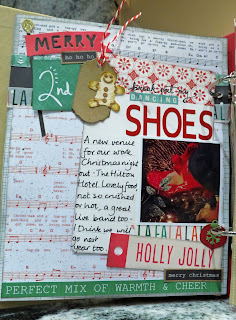 MERRY
ho ho ho
2nd
break out my
DANCING
SHOES
A new venue
for our work
Christmas night
out - The Hilton
Hotel. Lovely food,
not so crushed
or hot, a great
live band too -
I think we will
go next
year too.
LALALALA
HOLLY JOLLY
merry christmas
PERFECT MIX OF WARMTH & CHEER